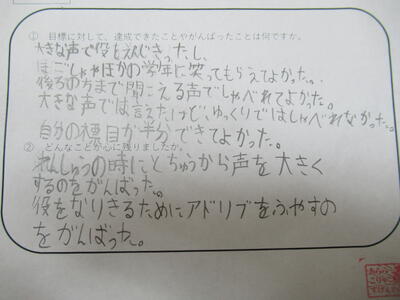 ① 目標に対して、達成できたことやがんばったことは何ですか。
大きな声で役をえんじきったし、
ほごしゃやほかの学年に笑ってもらえてよかった。
後ろの方まで聞こえる声でしゃべれてよかった。
大きな声では言えたけど、ゆっくりではしゃべれなかった。
自分の種目が半分できてよかった。
② どんなことが心に残りましたか。
れんしゅうの時にとちゅうから声を大きく
するのをがんばった。
役をなりきるためにアドリブをふやすの
をがんばった。